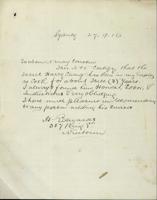 Sydney 27.9.16
To whom it may concern
This is to Certify that the
bearer Harry Chung has been in my employ
as Cook for about Three (3) Years.
I always found him Honest, Sober, &
Industrious & very obliging.
I have much pleasure in recommending
to any person needing his services
H. Edwards
King St
Newtown